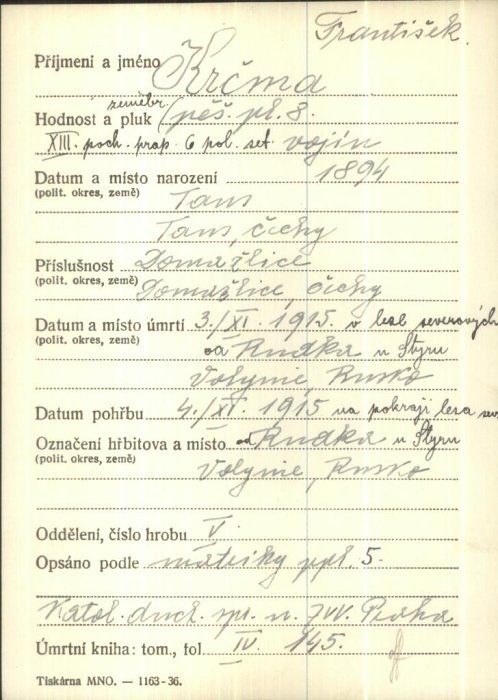 František
Příjmení a jméno Krčma
zeměbr.
Hodnost a pluk pěš. pl. 8.
XIII. poch. prap. 6 pol. set. vojín
Datum a místo narození 1894
(polit. okres, země) Taus
Taus, Čechy
Příslušnost Domažlice
(polit. okres, země) Domažlice, Čechy
Datum a místo úmrtí 3./XI. 1915. v lese severových.
(polit. okres, země) od Rudka u Styru
Volynie, Rusko
Datum pohřbu 4./XI. 1915 na pokraji lesa sev.
Označení hřbitova a místo od Rudka u Styru
(polit. okres, země)
Volynie, Rusko
Oddělení, číslo hrobu V.
Opsáno podle matriky ppl. 5.
Katol. duch. spr. n. ZVV. Praha
Úmrtní kniha: tom., fol IV. 145.
Tiskárna MNO. — 1163-36.